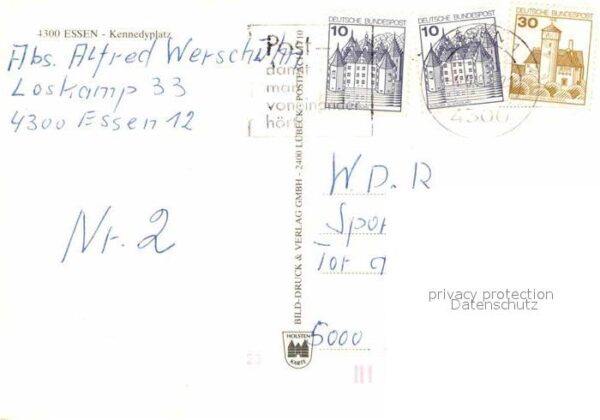 4300 ESSEN - Kennedyplatz
Abs. Alfred
Loskamp 33
4300 Essen 12
Nr. 2
Post
damit
man
voneinander
hör
10
DEUTSCHE BUNDESPOST
10
DEUTSCHE BUNDESPOST
30
DEUTSCHE BUNDESPOST
4300
BILD-DRUCK & VERLAG GMBH - 2400 LÜBECK - POSTFACH
W.D.R
Spor
Tor
5000
privacy protection
Datenschutz
HOLSTEN
KARTE